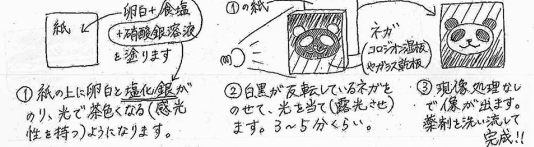 紙
卵白+食塩
+硝酸銀溶液
を塗ります
①紙の上に卵白と塩化銀が
のり、光で茶色くなる(感光
性を持つ)ようになります。
①の紙
ネガ
コロジオン湿板
やガラス乾板
②白黒が反転しているネガを
のせて、光を当て(露光させ)
ます。3〜5分くらい。
③現像処理なし
で像が出ます。
薬剤を洗い流して
完成!!